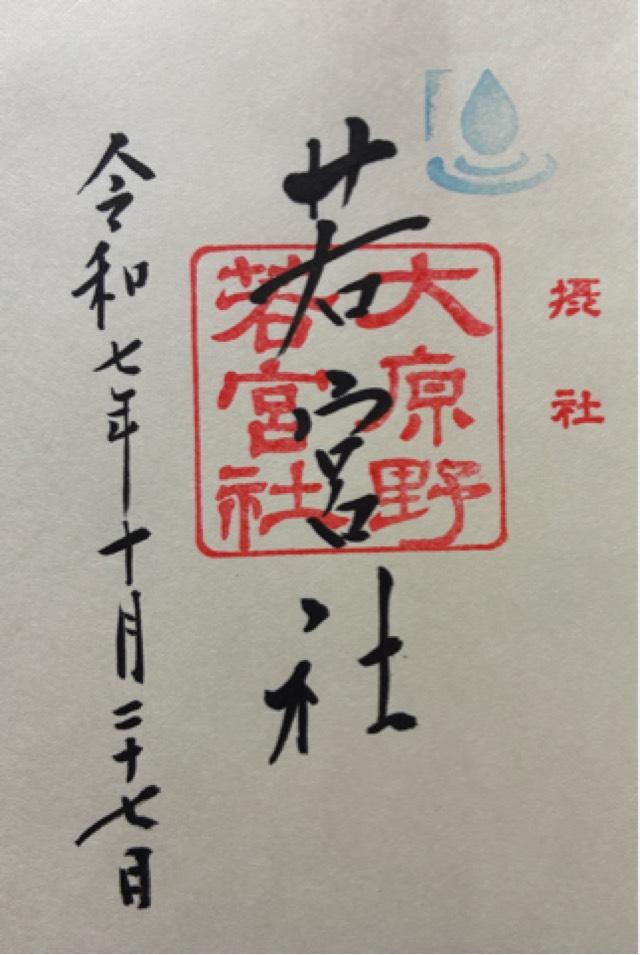 摂社
若宮社
大原野
若宮社
令和七年十月二十七日